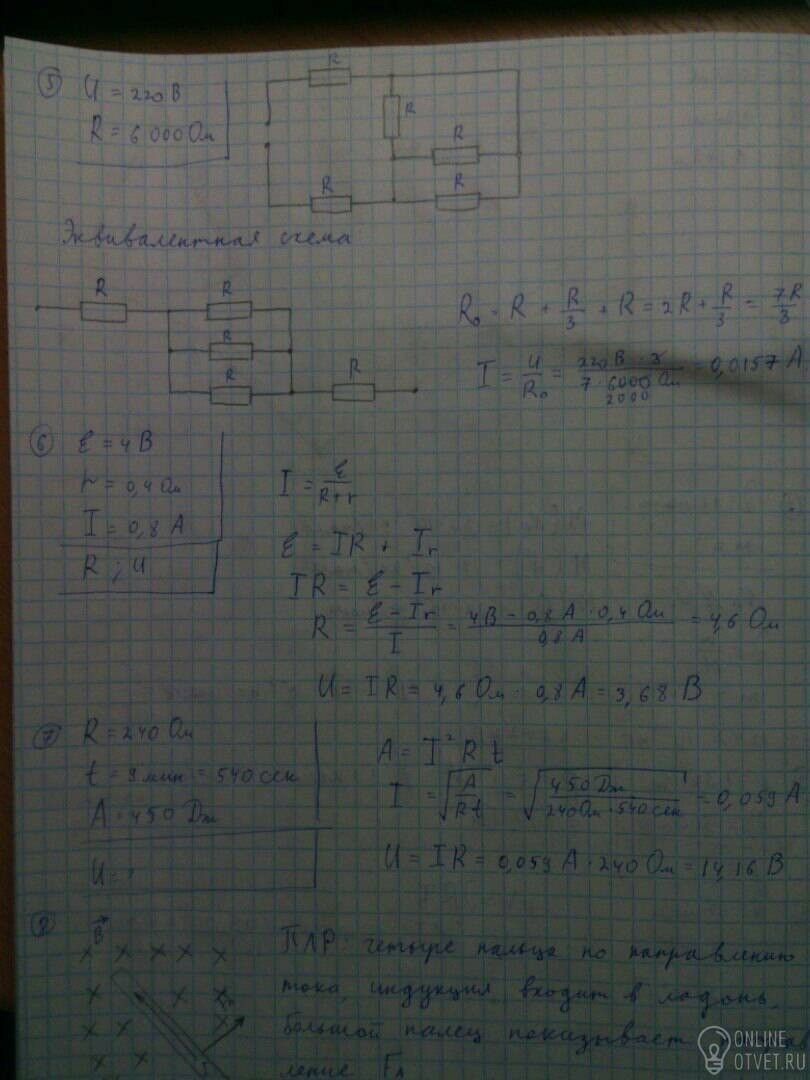 5 U = 220 В
R = 6 000 Ом
R
R
R
R
R
Эквивалентная схема
R
R
R
R
R
R₀ = R + R/3 + R = 2R + R/3 = 7R/3
I = U/R₀ = 220 В · 3 / 7 · 6000 Ом = 0,0157 А
2000
6 ℰ = 4 В
r = 0,4 Ом
I = 0,8 А
R ; U
I = ℰ/(R+r)
ℰ = IR + Ir
IR = ℰ - Ir
R = (ℰ - Ir)/I = (4В - 0,8 А · 0,4 Ом)/0,8 А = 4,6 Ом
U = IR = 4,6 Ом · 0,8 А = 3,68 В
7 R = 240 Ом
t = 9 мин = 540 сек
A = 450 Дж
U =
A = I² R t
I = √(A/Rt) = √(450 Дж/240 Ом · 540 сек) = 0,059 А
U = IR = 0,059 А · 240 Ом = 14,16 В
8 B
ПЛР: четыре пальца по направлению
тока, индукция входит в ладонь,
большой палец показывает
ление Fл
ONLINE
OTVET.RU